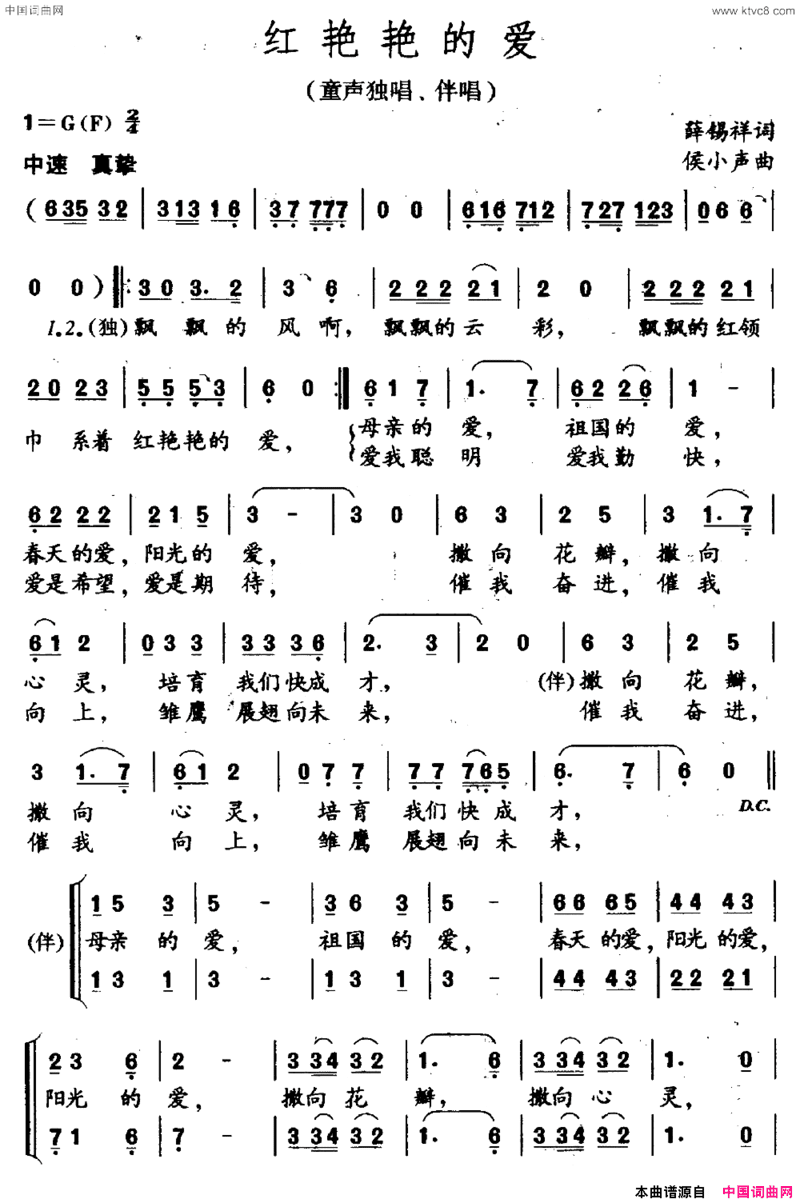 中国词曲网
www.ktvc8.com
红艳艳的爱
(童声独唱、伴唱)
1=G(F) 2/4
薛锡祥词
中速 真挚
侯小声曲
(635 32 | 3131 6 | 37 777 | 0 0 | 616 712 | 727 123 | 06 6 |
0 0)‖: 30 3. 2 | 3 6 | 222 21 | 2 0 | 222 21 |
1.2.(独)飘飘的风啊,飘飘的云彩,飘飘的红领
20 23 | 55 53 | 6 0 :‖ 61 7 | 1. 7 | 62 26 | 1 - |
巾系着红艳艳的爱,母亲的爱,祖国的爱,
爱我聪明爱我勤快,
62 22 | 21 5 | 3 - | 3 0 | 6 3 | 2 5 | 3 1. 7 |
春天的爱,阳光的爱,撒向花瓣,撒向
爱是希望,爱是期待,催我奋进,催我
61 2 | 033 | 33 36 | 2. 3 | 2 0 | 6 3 | 2 5 |
心灵,培育我们快成才,(伴)撒向花瓣,
向上,雏鹰展翅向未来,催我奋进,
3 1. 7 | 61 2 | 07 7 | 77 765 | 6. 7 | 6 0 ‖
撒向心灵,培育我们快成才,D.C.
催我向上,雏鹰展翅向未来,
15 3 | 5 - | 36 3 | 5 - | 66 65 | 44 43 |
(伴)母亲的爱,祖国的爱,春天的爱,阳光的爱,
13 1 | 3 - | 13 1 | 3 - | 44 43 | 22 21 |
23 6 | 2 - | 334 32 | 1. 6 | 334 32 | 1. 0 |
阳光的爱,撒向花瓣,撒向心灵,
71 6 | 7 - | 334 32 | 1. 6 | 334 32 | 1. 0 |
本曲谱源自 中国词曲网